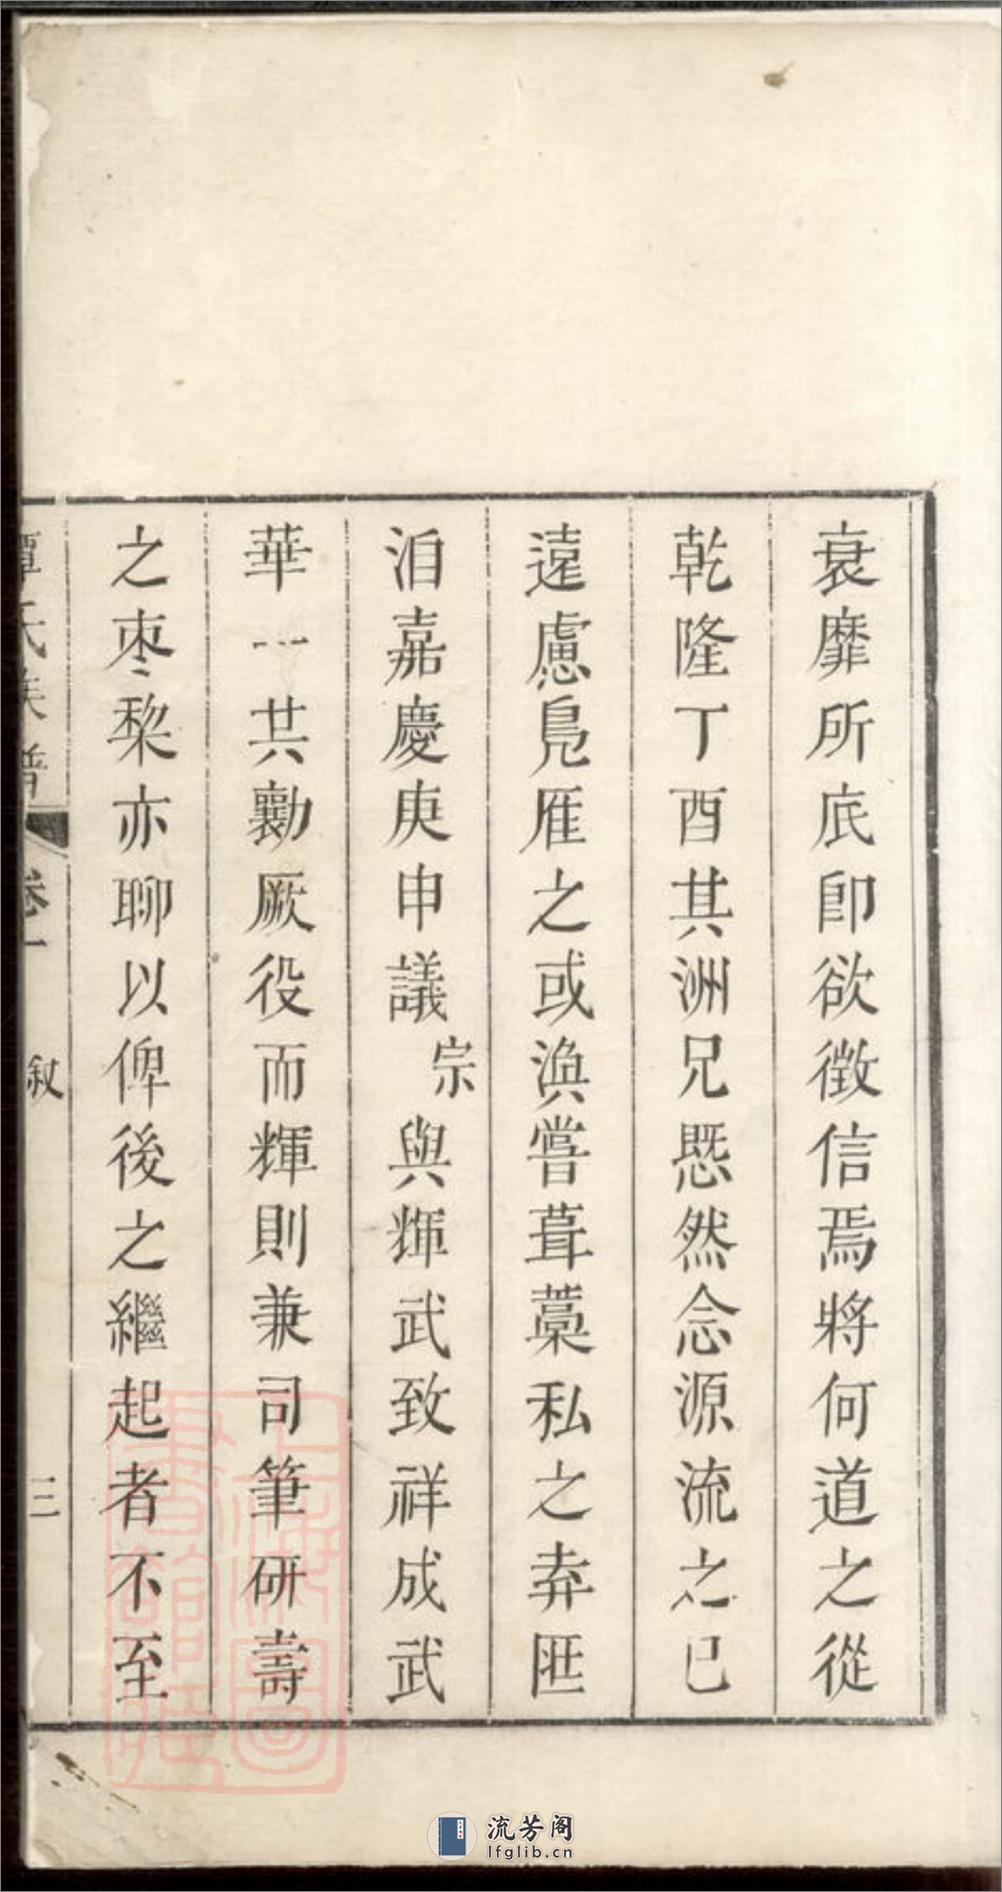 衰靡所底即欲徵信焉將何道之從
乾隆丁酉其洲兄慨然念源流之已
遠慮鳧雁之或渙嘗葺藁私之弆匪
洎嘉慶庚申議宗與輝武致祥成武
華一共勷厥役而輝則兼司筆研壽
之枣棃亦聊以俾後之繼起者不至
譚氏族譜 卷一 敘 三
上海圖書館藏
流芳阁
lfglib.cn